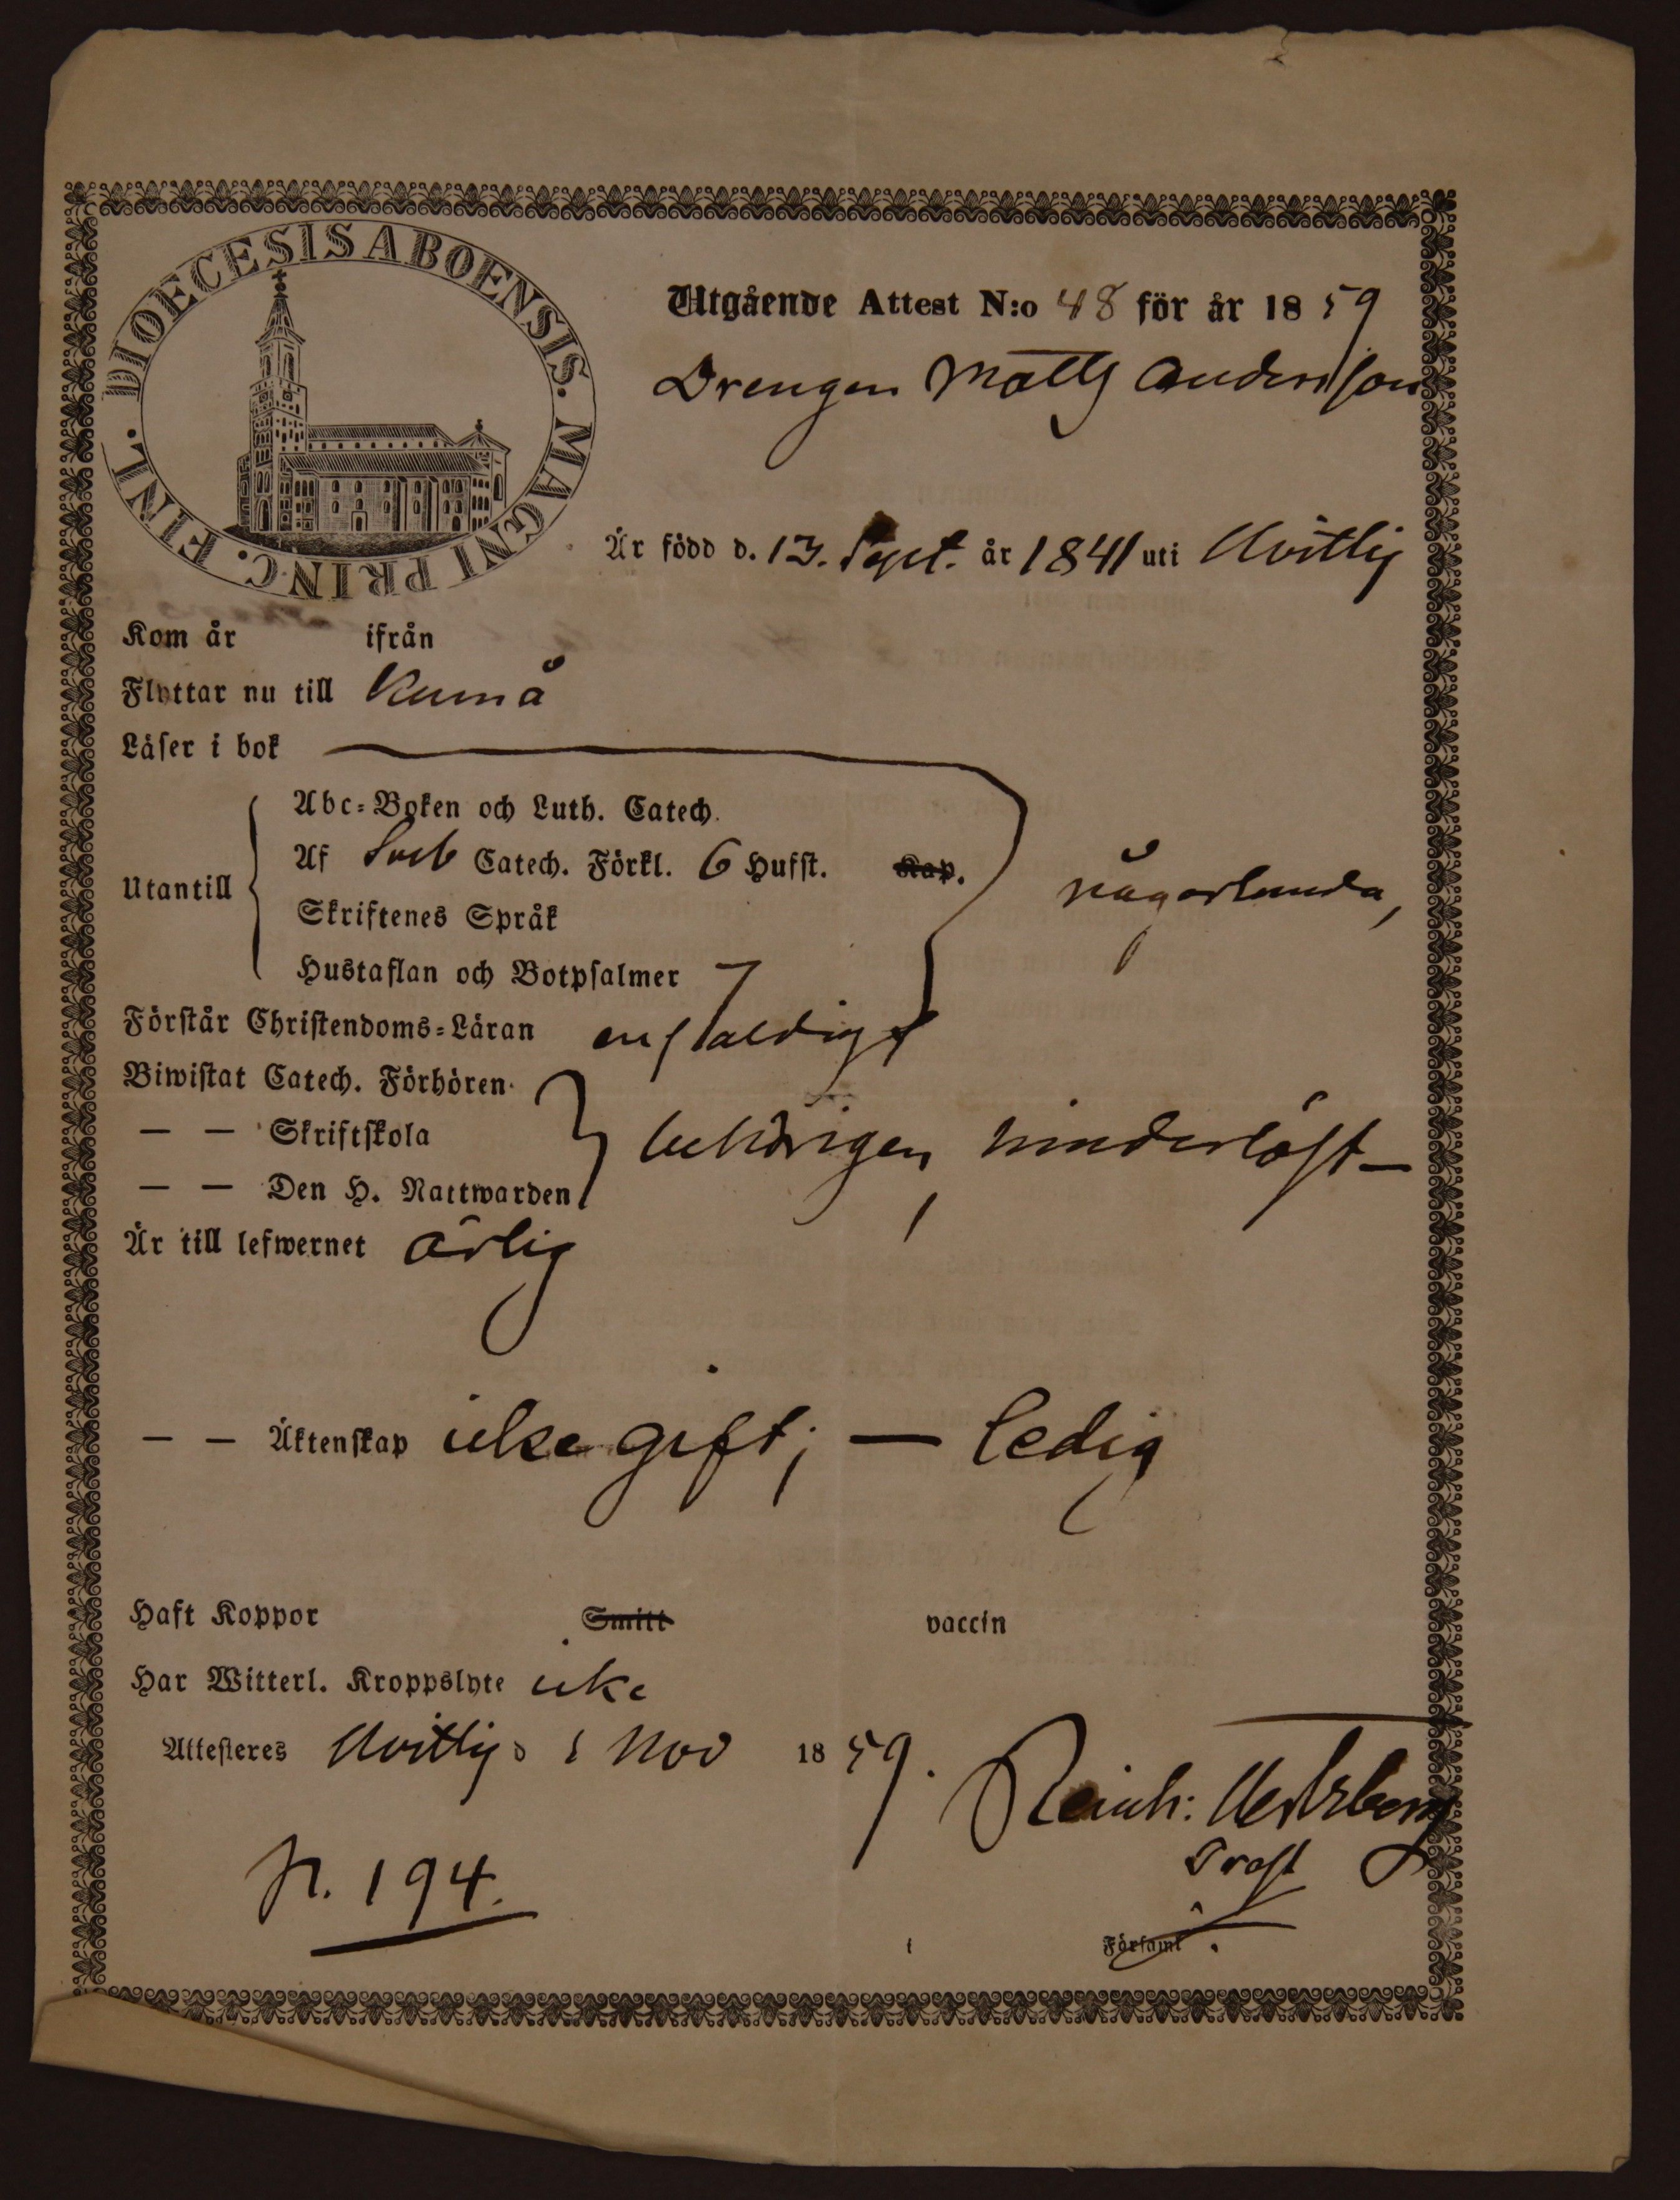 DIOECESIS ABOENSIS. MAGNI PRINC. FINL.
Utgående Attest N:o 48 för år 1859
Drengen Matts Andersson
Är född d. 13. Sept. år 1841 uti Hvittis
Kom år ifrån
Flyttar nu till Kumå
Läser i bok
Abc-Boken och Luth. Catech.
Af Sveb Catech. Förkl. 6 Hufst. Kap.
Utantill
någorlunda,
Skriftenes Språk
Hustaflan och Botpsalmer
Förstår Christendoms-Läran enfaldigt
Biwistat Catech. Förhören
— — Skriftskola
behörigen, hinderlöst —
— — Den H. Nattwarden
Är till lefwernet ärlig
— — Äktenskap icke gift; — ledig
Haft Koppor Smitt vaccin
Har Witterl. Kroppslyte icke
Attesteres Hvittis d Nov 1859.
Reinh:
Prost
p. 194.
i Församl.